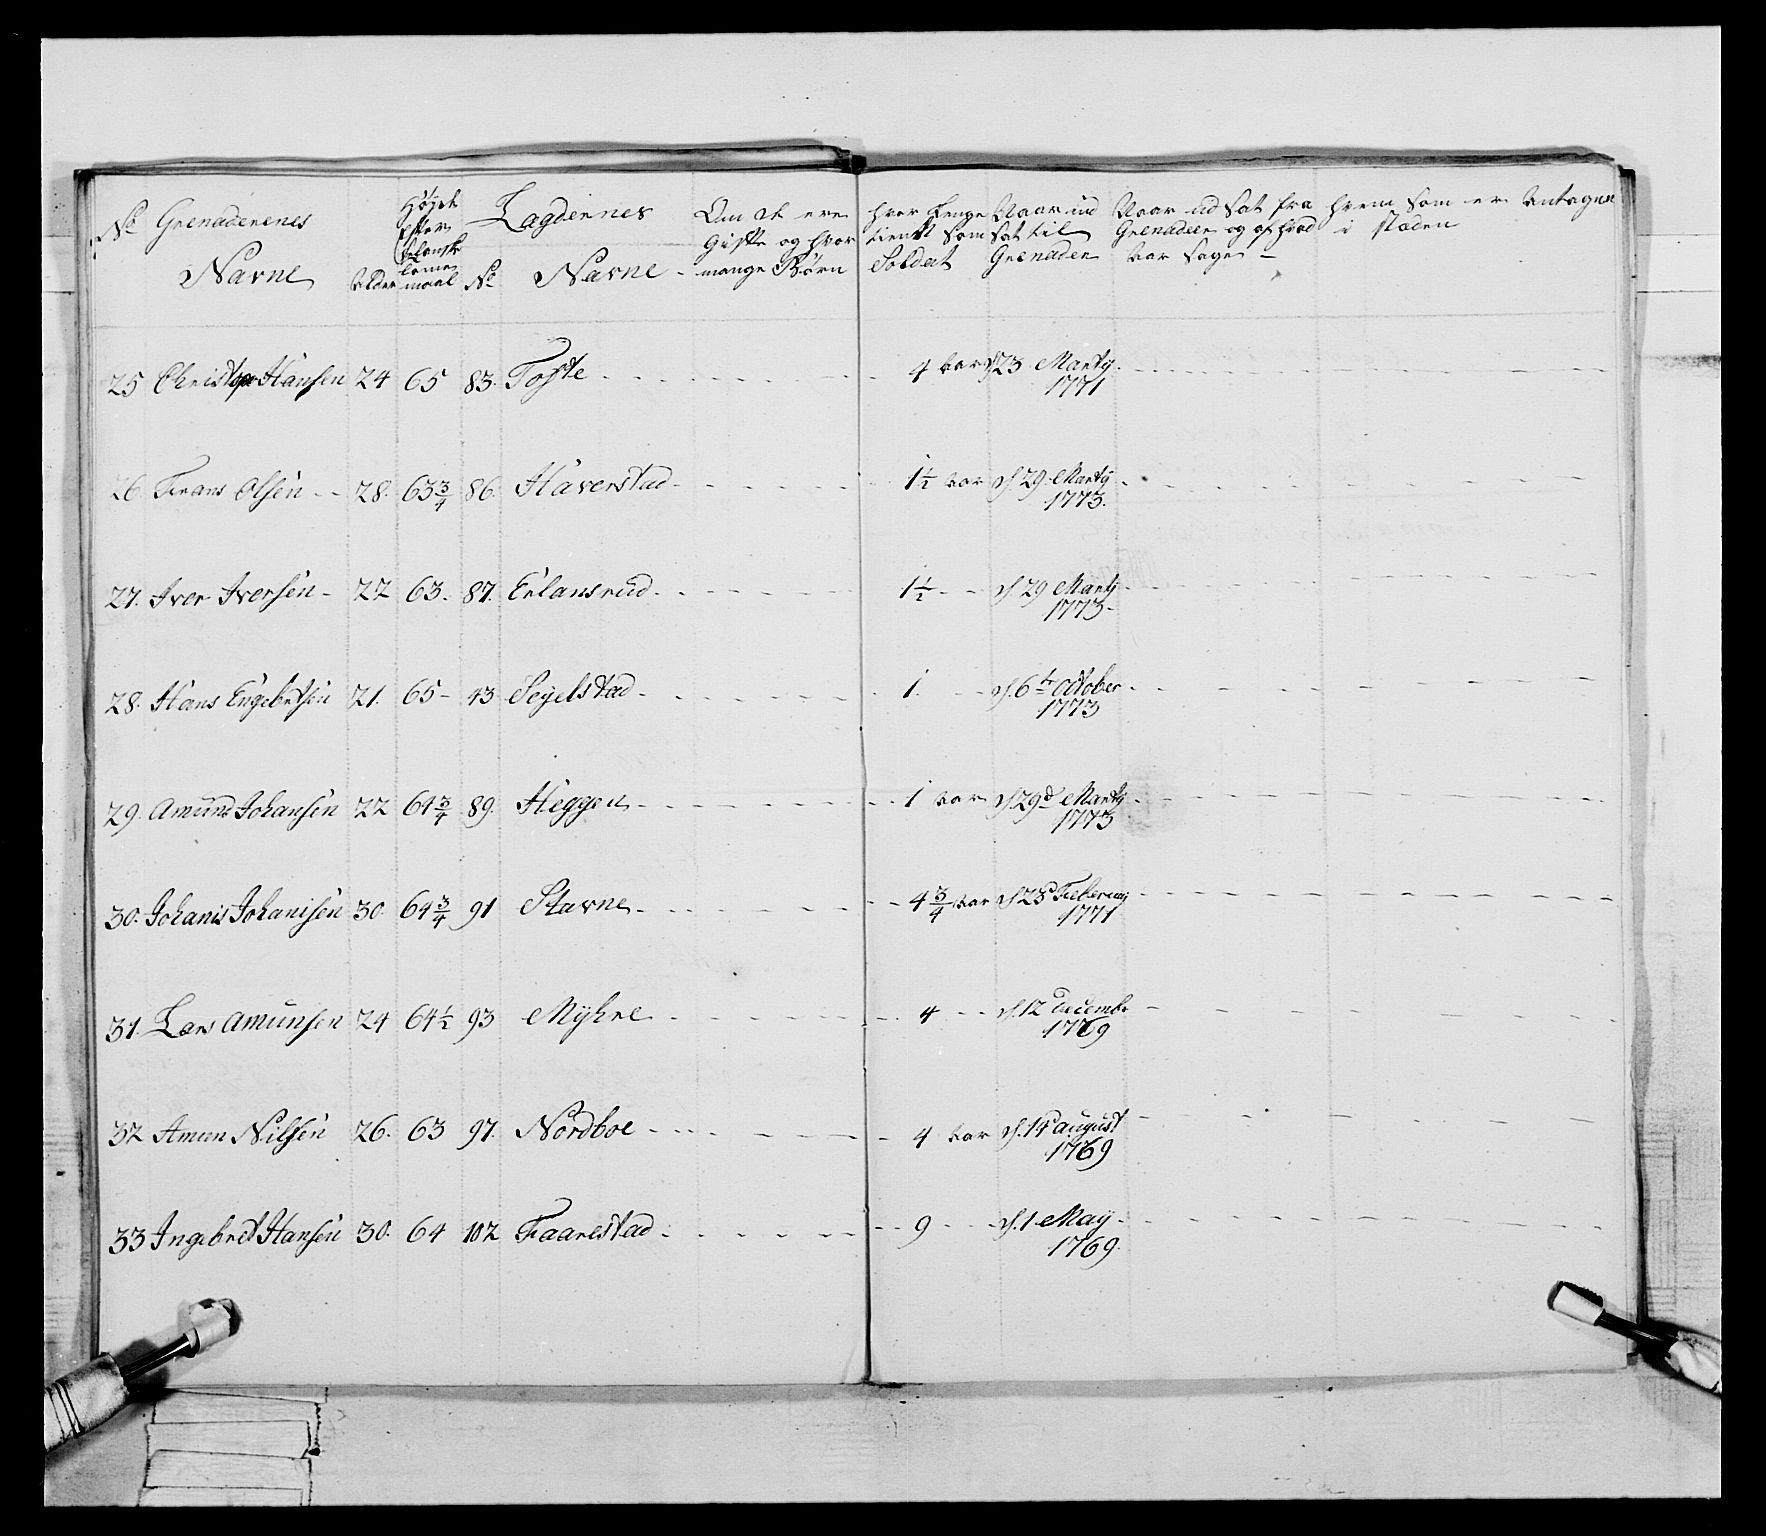 No Grenaderenes Navne Alder Højde efter Selanske lome maal No Lagdernes Navne Om de ere Gifte og hvor mange Børn hvor lenge tient som Soldat Naar ud sat til Grenader Naar ud sat fra Grenadeer og af hvad Aarsage hvem som er Antagen i staden
25 Christopr Hansen 24 65 83. Toste 4 aar d 23 Martÿ 1771
26. Frans Olsen 28. 63 3/4 86. Haverstad 1 1/2 aar d. 29. Martÿ 1773.
27. Iver Iversen 22 63. 87. Erlansrud 1 1/2 d. 29 Martÿ 1773
28. Hans Engebetsen 21. 65 43 Segelstad 1. d. 6te October 1773
29. Amund Johansen 22 64 3/4 89. Heggen 1 aar d. 29d Martÿ 1773
30. Johanis Johanisen 30. 64 3/4 91 Stavne 4 3/4 aar d. 23d Feberuarÿ 1771
31. Lars Amunsen 24 64 1/2 93 Mÿhre 4 d. 12 Decembr 1769
32 Amun Nilsen 26. 63 97. Nordboe 4 aar d. 14 august 1769
33 Ingebret Hansen 30. 64 102 Faarestad 9 d. 1 Maÿ 1769.